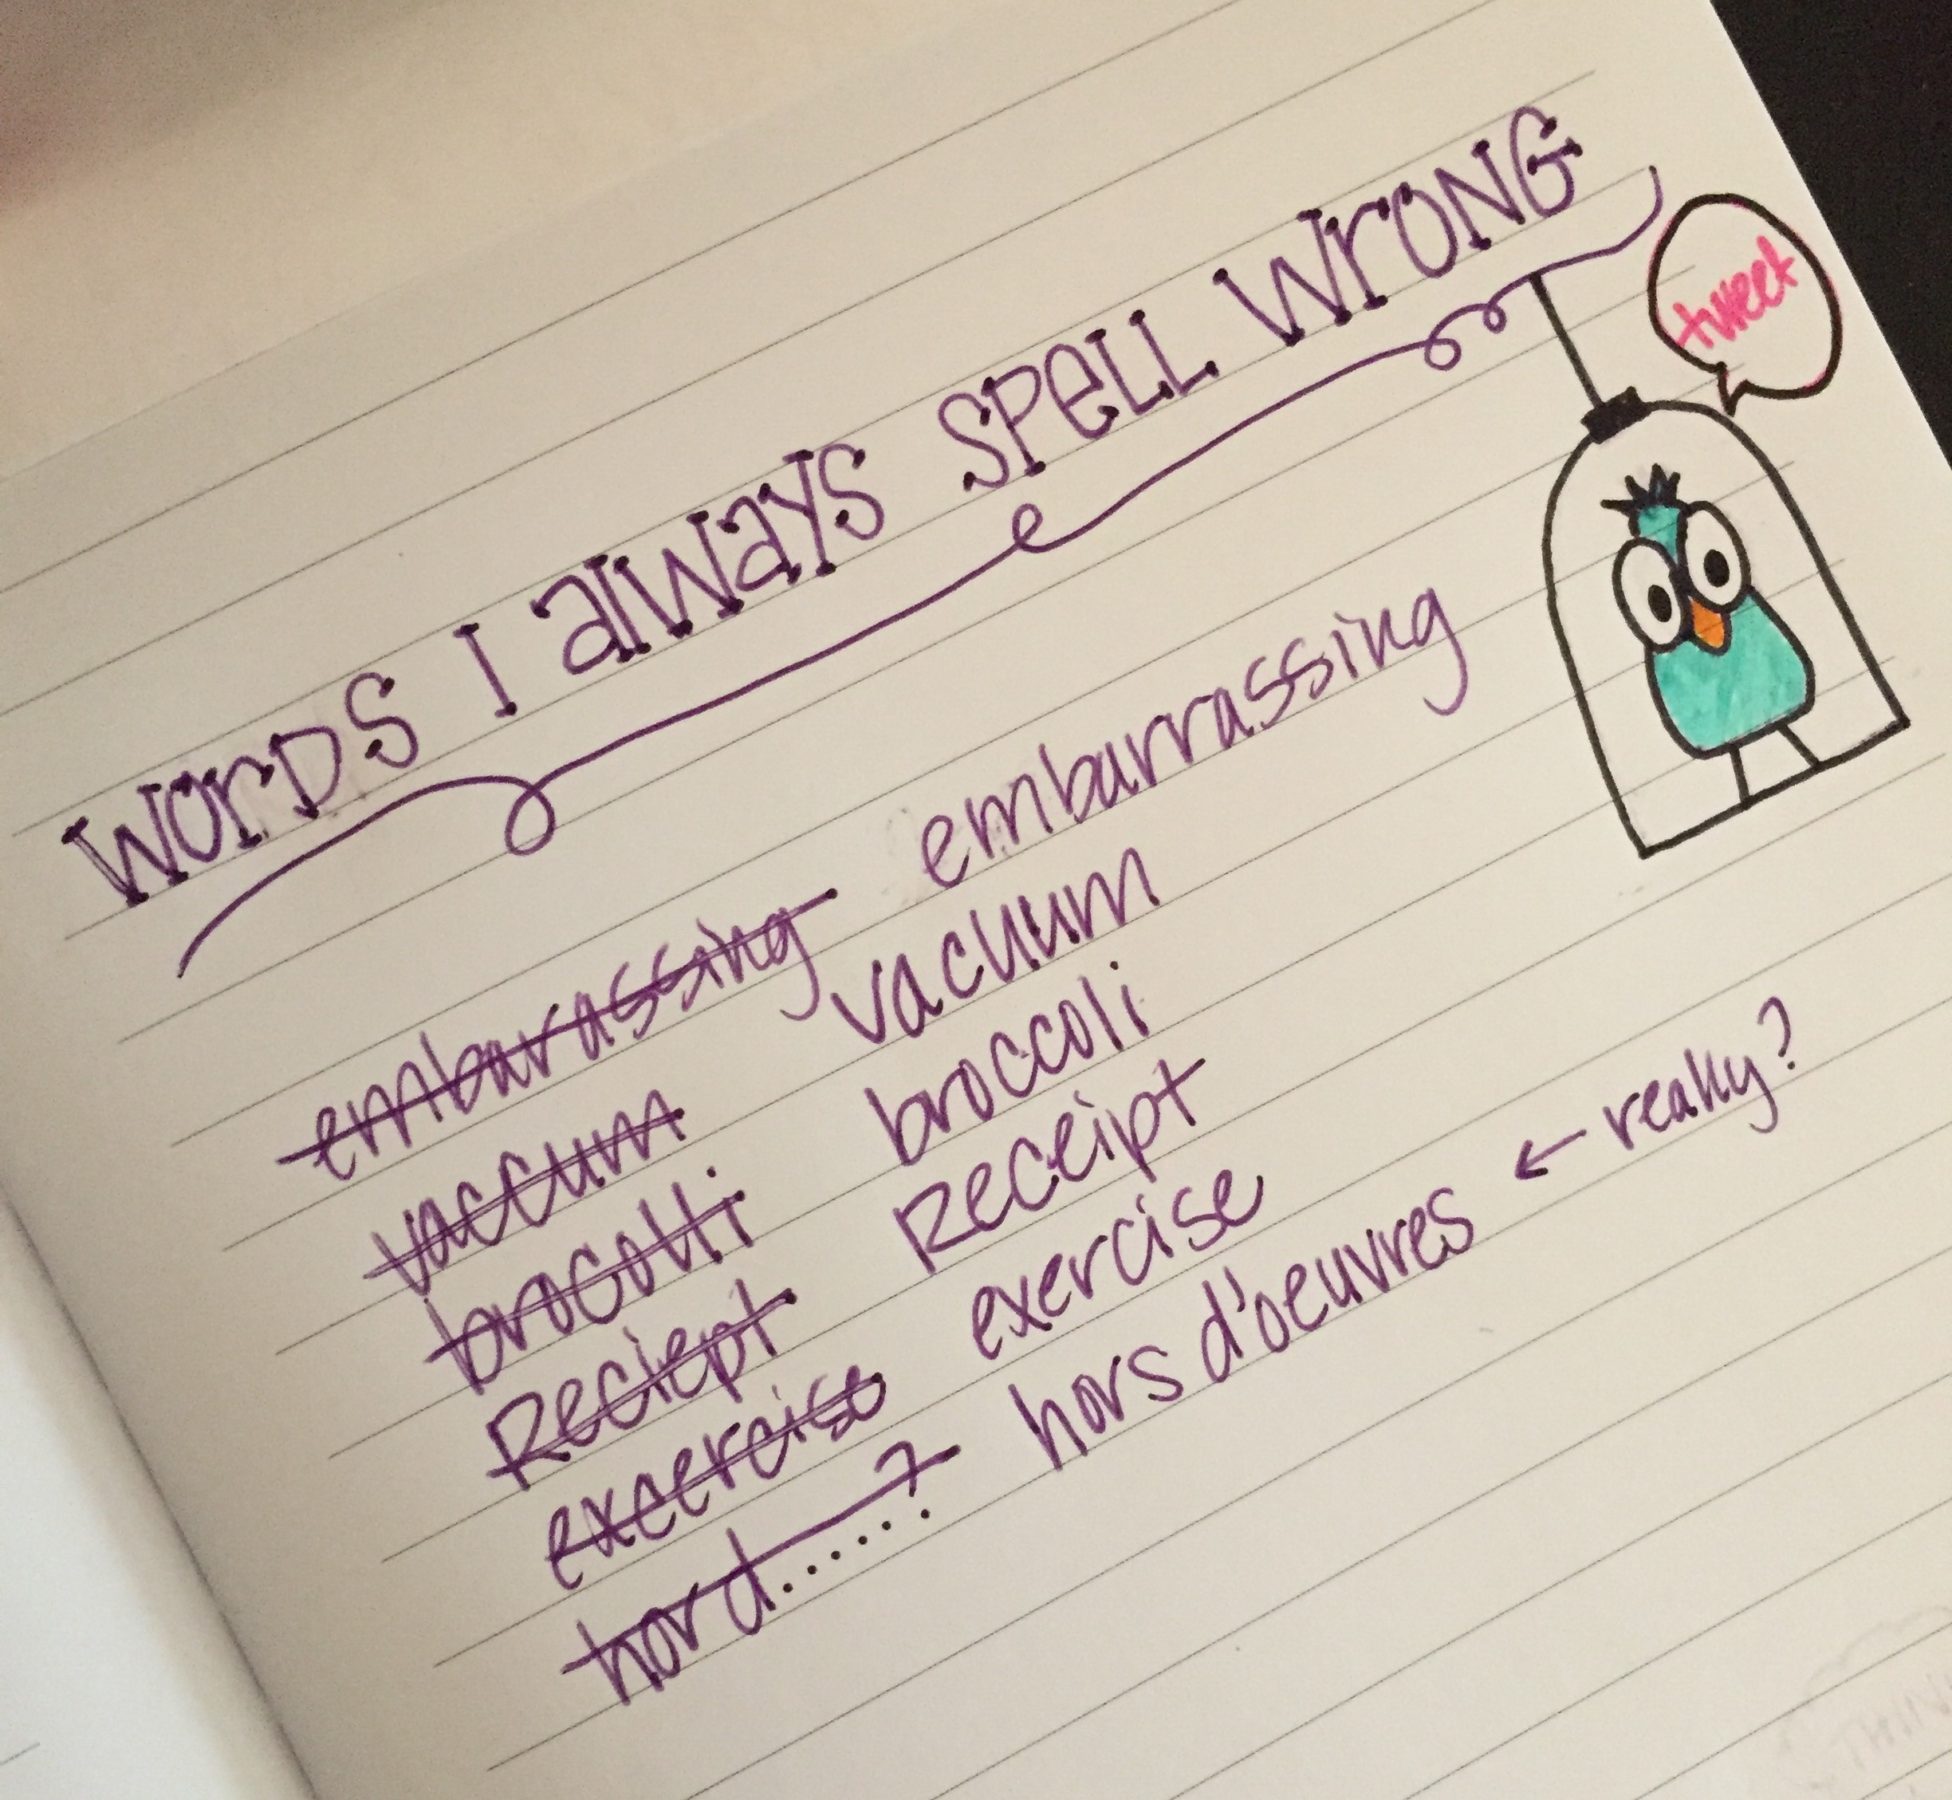 words I always spell wrong
tweet
embarassing embarrassing
vaccum vacuum
brocolli broccoli
Reciept Receipt
excercise exercise
hord......? hors d'oeuvres ← really?